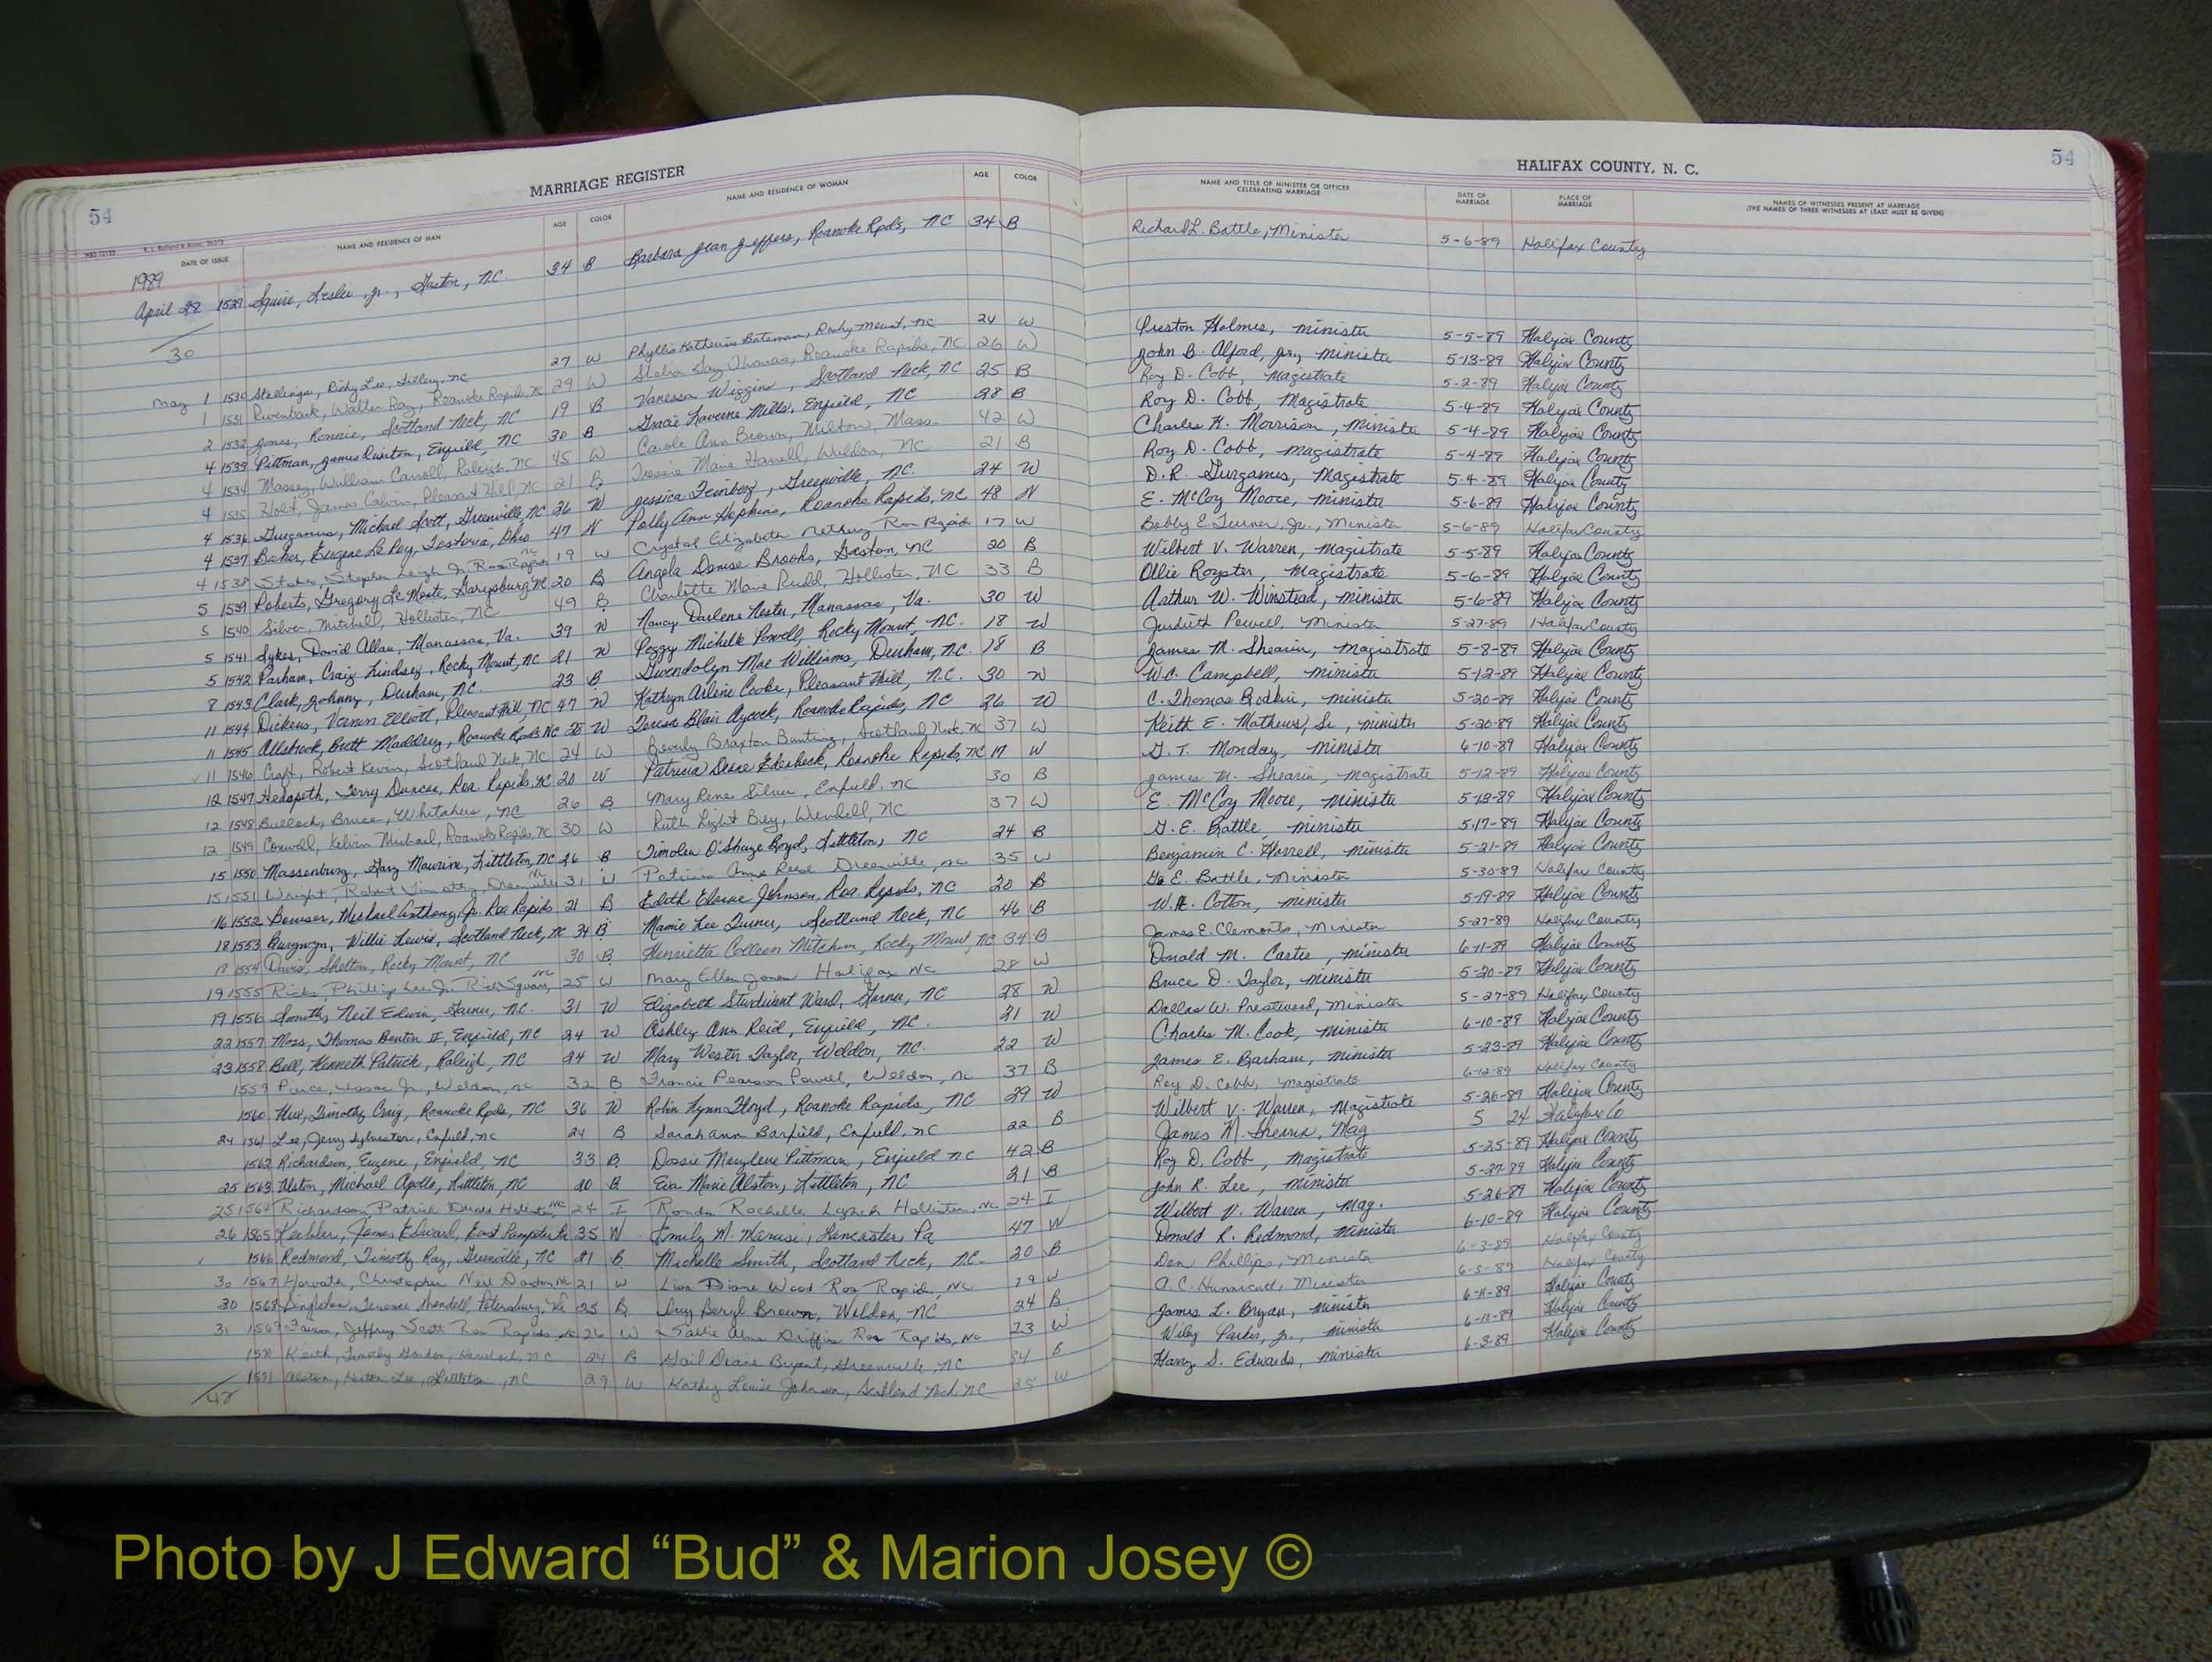 54
MARRIAGE REGISTER
HALIFAX COUNTY, N. C.
54
DATE OF ISSUE NAME AND RESIDENCE OF MAN AGE COLOR NAME AND RESIDENCE OF WOMAN AGE COLOR NAME AND TITLE OF MINISTER OR OFFICER CELEBRATING MARRIAGE DATE OF MARRIAGE PLACE OF MARRIAGE NAMES OF WITNESSES PRESENT AT MARRIAGE (THE NAMES OF THREE WITNESSES AT LEAST MUST BE GIVEN)
1989
April 28 1529 Squire, Leslie Jr., Gaston, NC. 34 B Barbara Jean Jeffers, Roanoke Rpds, NC 34 B Richard L. Battle, Minister 5-6-89 Halifax County
30
May 1 1530 Stallings, Ricky Lee, Tillery, NC 27 W Phyllis Katherine Bateman, Rocky Mount, NC 24 W Preston Holmes, minister 5-5-89 Halifax County
1 1531 Rivenbark, Walter Ray, Roanoke Rapids, NC 29 W Gay Thomas, Roanoke Rapids, NC 26 W John B. Alford, Jr., minister 5-13-89 Halifax County
2 1532 Jones, Ronnie, Scotland Neck, NC 19 B Vanessa Wiggins, Scotland Neck, NC 25 B Roy D. Cobb, Magistrate 5-2-89 Halifax County
4 1533 Pittman, James Enfield, NC 30 B Gracie Laverne Mills, Enfield, NC 28 B Roy D. Cobb, Magistrate 5-4-89 Halifax County
4 1534 Massey, William Carroll, Raleigh, NC 45 W Carole Ann Brown, Milton, Mass. 42 W Charles H. Morrison, minister 5-4-89 Halifax County
4 1535 Holt, James Calvin, Pleasant Hill, NC 21 B Marie Harrell, Weldon, NC 21 B Roy D. Cobb, magistrate 5-4-89 Halifax County
4 1536 Gurganus, Michael Scott, Greenville, NC 26 W Jessica Feinberg, Greenville, NC. 24 W D.R. Gurganus, Magistrate 5-4-89 Halifax County
4 1537 Baker, Eugene LeRoy, Fostoria, Ohio 47 N Polly Ann Hopkins, Roanoke Rapids, NC 48 N E. McCoy Moore, minister 5-6-89 Halifax County
4 1538 Stephen Leigh Jr. Roa Rapids NC 19 W Crystal Elizabeth Roa Rapids 17 W Bobby E. Turner, Jr., Minister 5-6-89 Halifax County
5 1539 Roberts, Gregory Le Monte, Garysburg, NC 20 B Angela Denise Brooks, Gaston, NC 20 B Wilbert V. Warren, Magistrate 5-5-89 Halifax County
5 1540 Silver, Mitchell, Hollister, NC 49 B Charlotte Marie Rudd, Hollister, NC 33 B Ollie Royster, Magistrate 5-6-89 Halifax County
5 1541 Sykes, David Allan, Manassas, Va. 39 W Nancy Darlene Nester, Manassas, Va. 30 W Arthur W. Winstead, minister 5-6-89 Halifax County
5 1542 Parham, Craig Lindsey, Rocky Mount, NC 21 W Peggy Michelle Powell, Rocky Mount, NC. 18 W Judith Powell, Minister 5-27-89 Halifax County
8 1543 Clark, Johnny, Durham, NC. 23 B Gwendolyn Mae Williams, Durham, NC. 18 B James M. Shearin, magistrate 5-8-89 Halifax County
11 1544 Dickens, Vernon Elliott, Pleasant Hill, NC 47 W Kathryn Arline Cooke, Pleasant Hill, N.C. 30 W W.C. Campbell, minister 5-12-89 Halifax County
11 1545 Allsbrook, Brett Maddrey, Roanoke Rpds NC 28 W Teresa Blair Aycock, Roanoke Rapids, NC 26 W C. Thomas minister 5-20-89 Halifax County
11 1546 Craft, Robert Kevin, Scotland Neck, NC 24 W Beverly Braxton Bunting, Scotland Neck, NC 37 W Keith E. Mathews, Sr., minister 5-20-89 Halifax County
12 1547 Hedspeth, Terry Duncan, Roa. Rapids, NC 20 W Patricia Roanoke Rapids, NC 17 W G. T. Monday, minister 6-10-89 Halifax County
12 1548 Bullock, Bruce, Whitakers, NC 26 B Mary Rene Silver, Enfield, NC 30 B James M. Shearin, Magistrate 5-12-89 Halifax County
12 1549 Kelvin Michael, Roanoke Rapids, NC 30 W Ruth Light Bey, Wendell, NC 37 W E. McCoy Moore, minister 5-13-89 Halifax County
15 1550 Massenburg, Gary Maurice, Littleton, NC 26 B Timolen O'Shaye Boyd, Littleton, NC 24 B G. E. Battle, minister 5-17-89 Halifax County
15 1551 Wright, Robert Timothy, NC 31 W Patricia Anne NC 35 W Benjamin C. Harrell, minister 5-21-89 Halifax County
16 1552 Bowser, Michael Anthony, Jr. Roa Rapids 21 B Edith Elaine Johnson, Roa. Rapids, NC 20 B G. E. Battle, Minister 5-30-89 Halifax County
18 1553 Burgwyn, Willie Lewis, Scotland Neck, NC 34 B Mamie Lee Turner, Scotland Neck, NC 46 B W.H. Cotton, minister 5-19-89 Halifax County
18 1554 Davis, Shelton, Rocky Mount, NC 30 B Henrietta Colleen Mitchem, Rocky Mount, NC 34 B James E. Clements, Minister 5-27-89 Halifax County
19 1555 Ricks, Phillip Lee Jr. Rich Square, NC 25 W Mary Ellen Jones Halifax NC 28 W Donald M. Carter, minister 6-11-89 Halifax County
19 1556 Smith, Neil Edwin, Garner, NC. 31 W Elizabeth Sturdivant Ward, Garner, NC 28 W Bruce D. Taylor, minister 5-20-89 Halifax County
22 1557 Moss, Thomas Benton II, Enfield, NC 24 W Ashley Ann Reid, Enfield, NC. 21 W Dallas W. Prestwood, Minister 5-27-89 Halifax County
23 1558 Bell, Kenneth Patrick, Raleigh, NC 24 W Mary Wester Taylor, Weldon, NC. 22 W Charles M. Cook, minister 6-10-89 Halifax County
1559 Isaac Jr., Weldon, NC 32 B Francie Pearson Powell, Weldon, NC 37 B James E. Barham, minister 5-23-89 Halifax County
1560 Hux, Timothy Craig, Roanoke Rpds, NC 36 W Robin Lynn Floyd, Roanoke Rapids, NC 29 W Roy D. Cobb, Magistrate 6-12-89 Halifax County
24 1561 Lee, Jerry Sylvester, Enfield, NC 24 B Sarah Ann Barfield, Enfield, NC 22 B Wilbert V. Warren, Magistrate 5-26-89 Halifax County
1562 Richardson, Eugene, Enfield, NC 33 B Dossie Marylene Pittman, Enfield NC 42 B James M. Shearin, Mag 5 24 Halifax Co
25 1563 Alston, Michael Apollo, Littleton, NC 20 B Eva Marie Alston, Littleton, NC 21 B Roy D. Cobb, Magistrate 5-25-89 Halifax County
25 1564 Richardson, Patrick Hollister, NC 24 I Ronda Rochelle Lynch Hollister, NC 24 I John R. Lee, minister 5-27-89 Halifax County
26 1565 Keebler, James Edward, East Pa 35 W Emily M. Lancaster, Pa 47 W Wilbert V. Warren, Mag. 5-26-89 Halifax County
1566 Redmond, Timothy Ray, Greenville, NC 21 B Michelle Smith, Scotland Neck, NC. 20 B Donald R. Redmond, minister 6-10-89 Halifax County
30 1567 Horvath, Christopher Neil NC 21 W Lisa Diane Wood Roa Rapids, NC 19 W Don Phillips, Minister 6-3-89 Halifax County
30 1568 Singleton, Terence Petersburg, Va 25 B Beryl Brown, Weldon, NC 24 B A. C. Hunnicutt, Minister 6-3-89 Halifax County
31 1569 Jeffrey Scott Roa Rapids, NC 26 W Sallie Roa Rapids, NC 23 W James L. Bryan, minister 6-11-89 Halifax County
1570 Keith, Timothy Gordon, NC 24 B Gail Bryant, Greenville, NC 24 B Wiley Parker, Jr., minister 6-11-89 Halifax County
1571 Lee, Littleton, NC 29 W Kathy Louise Johnson, Scotland Neck, NC 25 W Harry S. Edwards, minister 6-3-89 Halifax County
42
Photo by J Edward “Bud” & Marion Josey ©